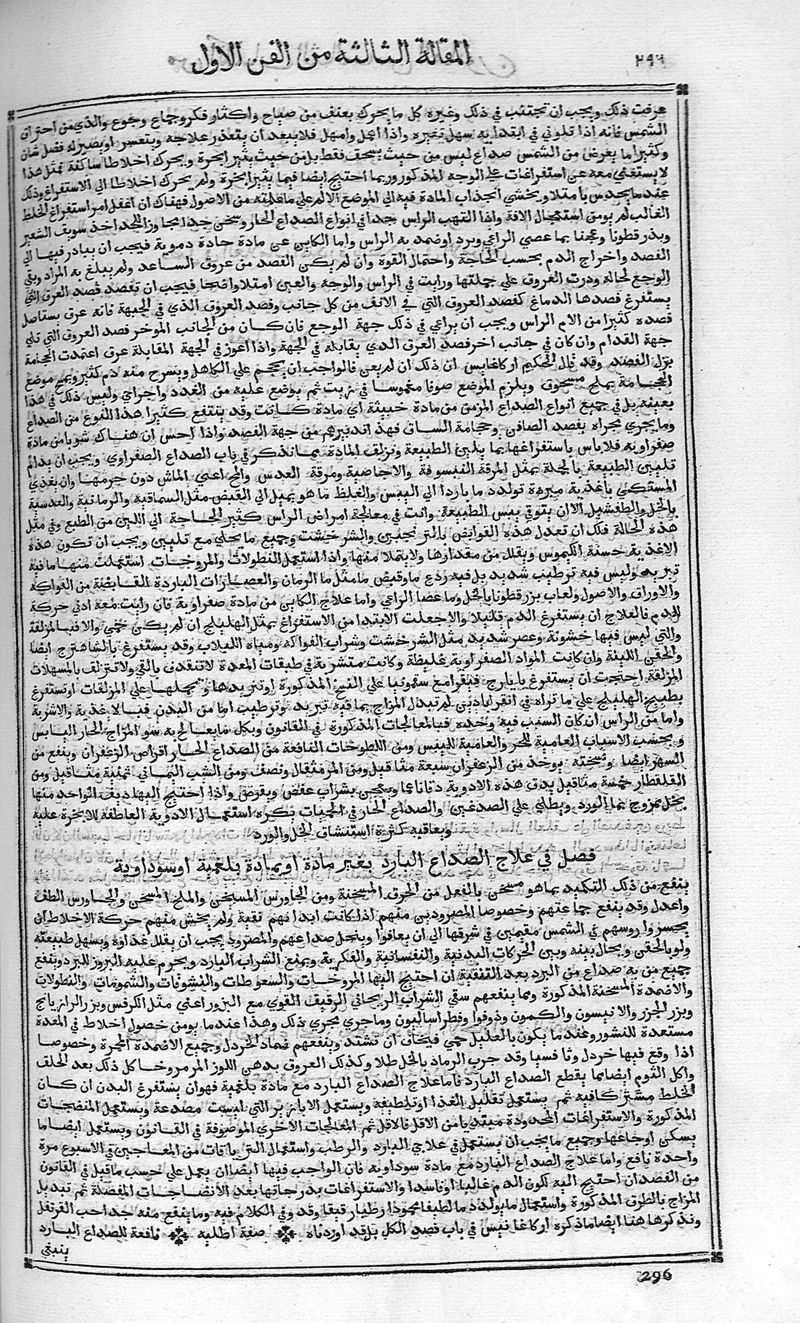 المقالة الثالثة من الفن الاول
٢٩٦
عرفت ذلك ويجب ان تجتنب في ذلك وغيره كل ما يحرك بعنف من صياح واكثار فكر وجماع وجوع والذي من احتراق
الشمس فانه اذا تلوفي في ابتدايه سهل تغييره واذا اهمل وامهل فلا يبعد ان يتعذر علاجه ويتعسر او يصير له فضل شان
وكثيرا ما يعرض من الشمس صداع ليس من حيث يسخف فقط بل من حيث يثير ابخرة ويحرك اخلاطا ساكنة فمثل هذا
لا يستغني معه عن استفراغات علي الوجه المذكور وربما احتيج ايضا فيما يثير ابخرة ولم يحرك اخلاطا الي الاستفراغ وذلك
عند ما يحدس بامتلاء ويخشي انجذاب المادة فيه الي الموضع الالم علي ما علمته من الاصول فهناك ان اغفل امر استفراغ الخلط
الغالب لم يومن استعجال الافة واذا التهب الراس جدا في انواع الصداع الحار وسخن جدا مجاوزا للحد اخذ سويف الشعير
وبزر قطونا وعجنا بما عصي الراعي وبرد اوضمد به الراس واما الكاين عن مادة حادة دموية فيجب ان يبادر فيها الي
الفصد واخراج الدم بحسب الحاجة واحتمال القوة وان لم يكن الفصد من عروق الساعد ولم يبلغ به المراد وبقي
الوجع لحالة ودرت العروق علي جملتها ورايت في الراس والوجه والعين امتلا وانتفا فيجب ان تقصد فصد العرق التي
يستفرغ فصدها الدماغ كفصد العروق التي في الانف من كل جانب وفصد العروق الذي في الجبهة فانه عرق يستاصل
فصده كثيرا من الام الراس ويجب ان يراعي في ذلك جهة الوجع فان كان من الجانب الموخر فصد العروق التي تلي
جهة القدام وان كان في جانب اخر فصد العرق الذي يقابله في الجهة واذا اعوز في الجهة المقابلة عرق اعتمدت الحجامة
بدل الفصد وقد قال الحكيم اركاغانيس ان ذلك ان لم يغن فالواجب ان يحجم علي الكاهل ويسرح منه دم كثير ويمسح موضع
الحجامة بملح مسحوق ويلزم الموضع صوفا مغموسا في زيت ثم يوضع عليه من الغدد واجراي وليس ذلك في هذا
بعينه بل في جميع انواع الصداع المزمن من مادة خبيثة اي مادة كانت وقد ينتفع كثيرا هذا النوع من الصداع
وما يجري مجراه بفصد الصافن وحجامة الساق فهذا تدبيرهم من جهة الفصد واذا احس ان هناك شوبا من مادة
صفراوية فلا باس باستفراغها بما يلين الطبيعة ويزلف المادة مما نذكر في باب الصداع الصفراوي ويجب ان يدام
تليين الطبيعة بالجملة بمثل المرقة النيسوقية والاجاصية ومرقة العدس والمج اعني الماش دون جرمها وان يغذي
المستكي باغذية مبردة تولد دما باردا الي اليبس والغلظ ما هو يميل الي القبض مثل السماقية والرمانية والعدسية
بالخل والطفشيل الا ان يتوقي يبس الطبيعة وانت في معالجة امراض الراس كثير الحاجة الي اللين من الطبع وفي مثل
هذه الحالة فلك ان تعدل هذه القوابض بالترنجبين والشرخشت وجميع ما يحلي مع تليين ويجب ان تكون هذه
الاغذية حسنة الكيموس ويقلل من مقدارها ولا يمتلا منها واذا استعمل النطولات والمروخات استعملت منها ما فيه
تبريد وليس فيه ترطيب شديد بل فيه ردع ما وقبض ما مثل ما الرمان والعصارات الباردة القابضة من الفواكه
والاوراق والاصول ولعاب بزرقطونا بالخل وما عصا الراعي واما علاج الكاين من مادة صفراوية فان رايت معه ادني حركة
للدم فالعلاج ان يستفرغ الدم قليلا والا جعلت الابتدا من الاستفراغ بمثل الهليلج ان لم يكن حمي والا فبالمزلقة
والتي ليس فيها خشونة وعصر شديد مثل الشرخشت وشراب الفواكه ومياه اللبلاب وقد يستفرغ بالشاهترج ايضا
والحقن اللينة وان كانت المواد الصفراوية غليظة وكانت متشربة في طبقات المعدة لا تنقذف بالقي ولا تنزلف بالمسهلات
المزلقة احتجت ان يستفرغ بايارج فيقرا مع سقمونيا علي النسخ المذكورة او تزيدها وتسهلها علي المزلقات او تستفرغ
بطبيخ الهليلج علي ما تراه في انقرابادين ثم تبدل المزاج بما فيه تبريد وترطيب اما من البدن فبالاغذية والاشربة
واما من الراس ان كان السبب فيه وحده فبالمعالجات المذكورة في القانون وبكل ما يعالج به سو المزاج الحار اليابس
وبحسب الاسباب العامية للحر والعامية لليبس ومن اللطوخات النافعة من الصداع الحار اقراص الزعفران وينفع من
السهر ايضا ونسخته يوخذ من الزعفران سبعة مثاقيل ومن المر مثقال ونصف ومن الشب اليماني ثمنية مثاقيل ومن
القلقطار خمسة مثاقيل يدق هذه الادوية دقا ناعما ويعجن بشراب عفص ويقرص واذا احتيج اليها ديف الواحد منها
بخل ممزوج بما الورد ويطلي علي الصدغين والصداع الحار في الحميات يكره استعمال الادوية العاطفة للابخرة عليه
ويعاقبه كثرة استنشاق الخل والورد
فصل في علاج الصداع البارد بغير مادة او بمادة بلغمية او سوداوية
ينفع من ذلك التكميد بما هو مسخن بالفعل من الخرق المسخنة ومن الجاورس المسخن والملح المسخن والجاورس الطف
واعدل وقد ينفع جماعتهم وخصوصا المصرودين منهم اذا كانت ابدانهم نقية ولم يخش منهم حركة الاخلاط ان
يحسروا روسهم في الشمس مقيمين في شرقها الي ان يعافوا وينحل صداعهم والمصرود يجب ان يقلل غذاوه ويسهل طبيعته
ولو بالحقن ويحال بينه وبين الحركات البدنية والنفسانية والفكرية ويمنع الشراب البارد ويحرم عليه البروز للبرد وينفع
جميع من به صداع من البرد بعد التنقية ان احتيج اليها المروخات والسعوطات والنشوقات والشمومات والنطولات
والاضمدة المسخنة المذكورة ومما ينفعهم سقي الشراب الريحاني الرقيف القوي مع البزور اعني مثل الكرفس وبزر الرازيانج
وبزر الجزر والانيسون والكمون وذوقوا وفطر اساليون وما جري مجري ذلك وهذا عند ما يومن حصول اخلاط في المعدة
مستعدة للنشور وعند ما يكون بالعليل حمي فيخاف ان تشتد وينفعهم ضماد الخردل وجميع الاضمدة المحمرة وخصوصا
اذا وقع فيها خردل وثافسيا وقد جرب الرماد بالخل طلا وكذلك العروق بدهن اللوز المر مروخا كل ذلك بعد الحلق
واكل الثوم ايضا مما يقطع الصداع البارد فاما علاج الصداع البارد مع مادة بلغمية فهو ان يستفرغ البدن ان كان
الخلط مشتركا فيه ثم يستعمل تقليل الغذا او تلطيفه ويستعمل الابازير التي ليست مصدعة ويستعمل المنضجات
المذكورة والاستفراغات المحدودة مبتديا من الاقل فالاقل ثم المعالجات الاخري الموصوفة في القانون ويستعمل ايضا ما
يسكن اوجاعها وجميع ما يجب ان يستعمل في علاج البارد والرطب واستعمال الترياقات من المعاجين في الاسبوع مرة
واحدة نافع واما علاج الصداع البارد مع مادة سوداوية فان الواجب فيها ايضا ان يعمل علي حسب ما قيل في القانون
من الفصد ان احتيج اليه لكون الدم غالبا او فاسدا والاستفراغات بدرجاتها بعد الانضاجات المفصلة ثم تبديل
المزاج بالطرق المذكورة واستعمال ما يولد دما لطيفا محمودا رطبا رقيقا وقد وفي الكلام فيه ومما ينفع منه جدا حب القرنفل
ونذكر هاهنا ايضا ما ذكره اركاغانيس في باب فصد الكل بل قد اوردناه ❊ صفة اطلية ❊ نافعة للصداع البارد
ينبغي
296